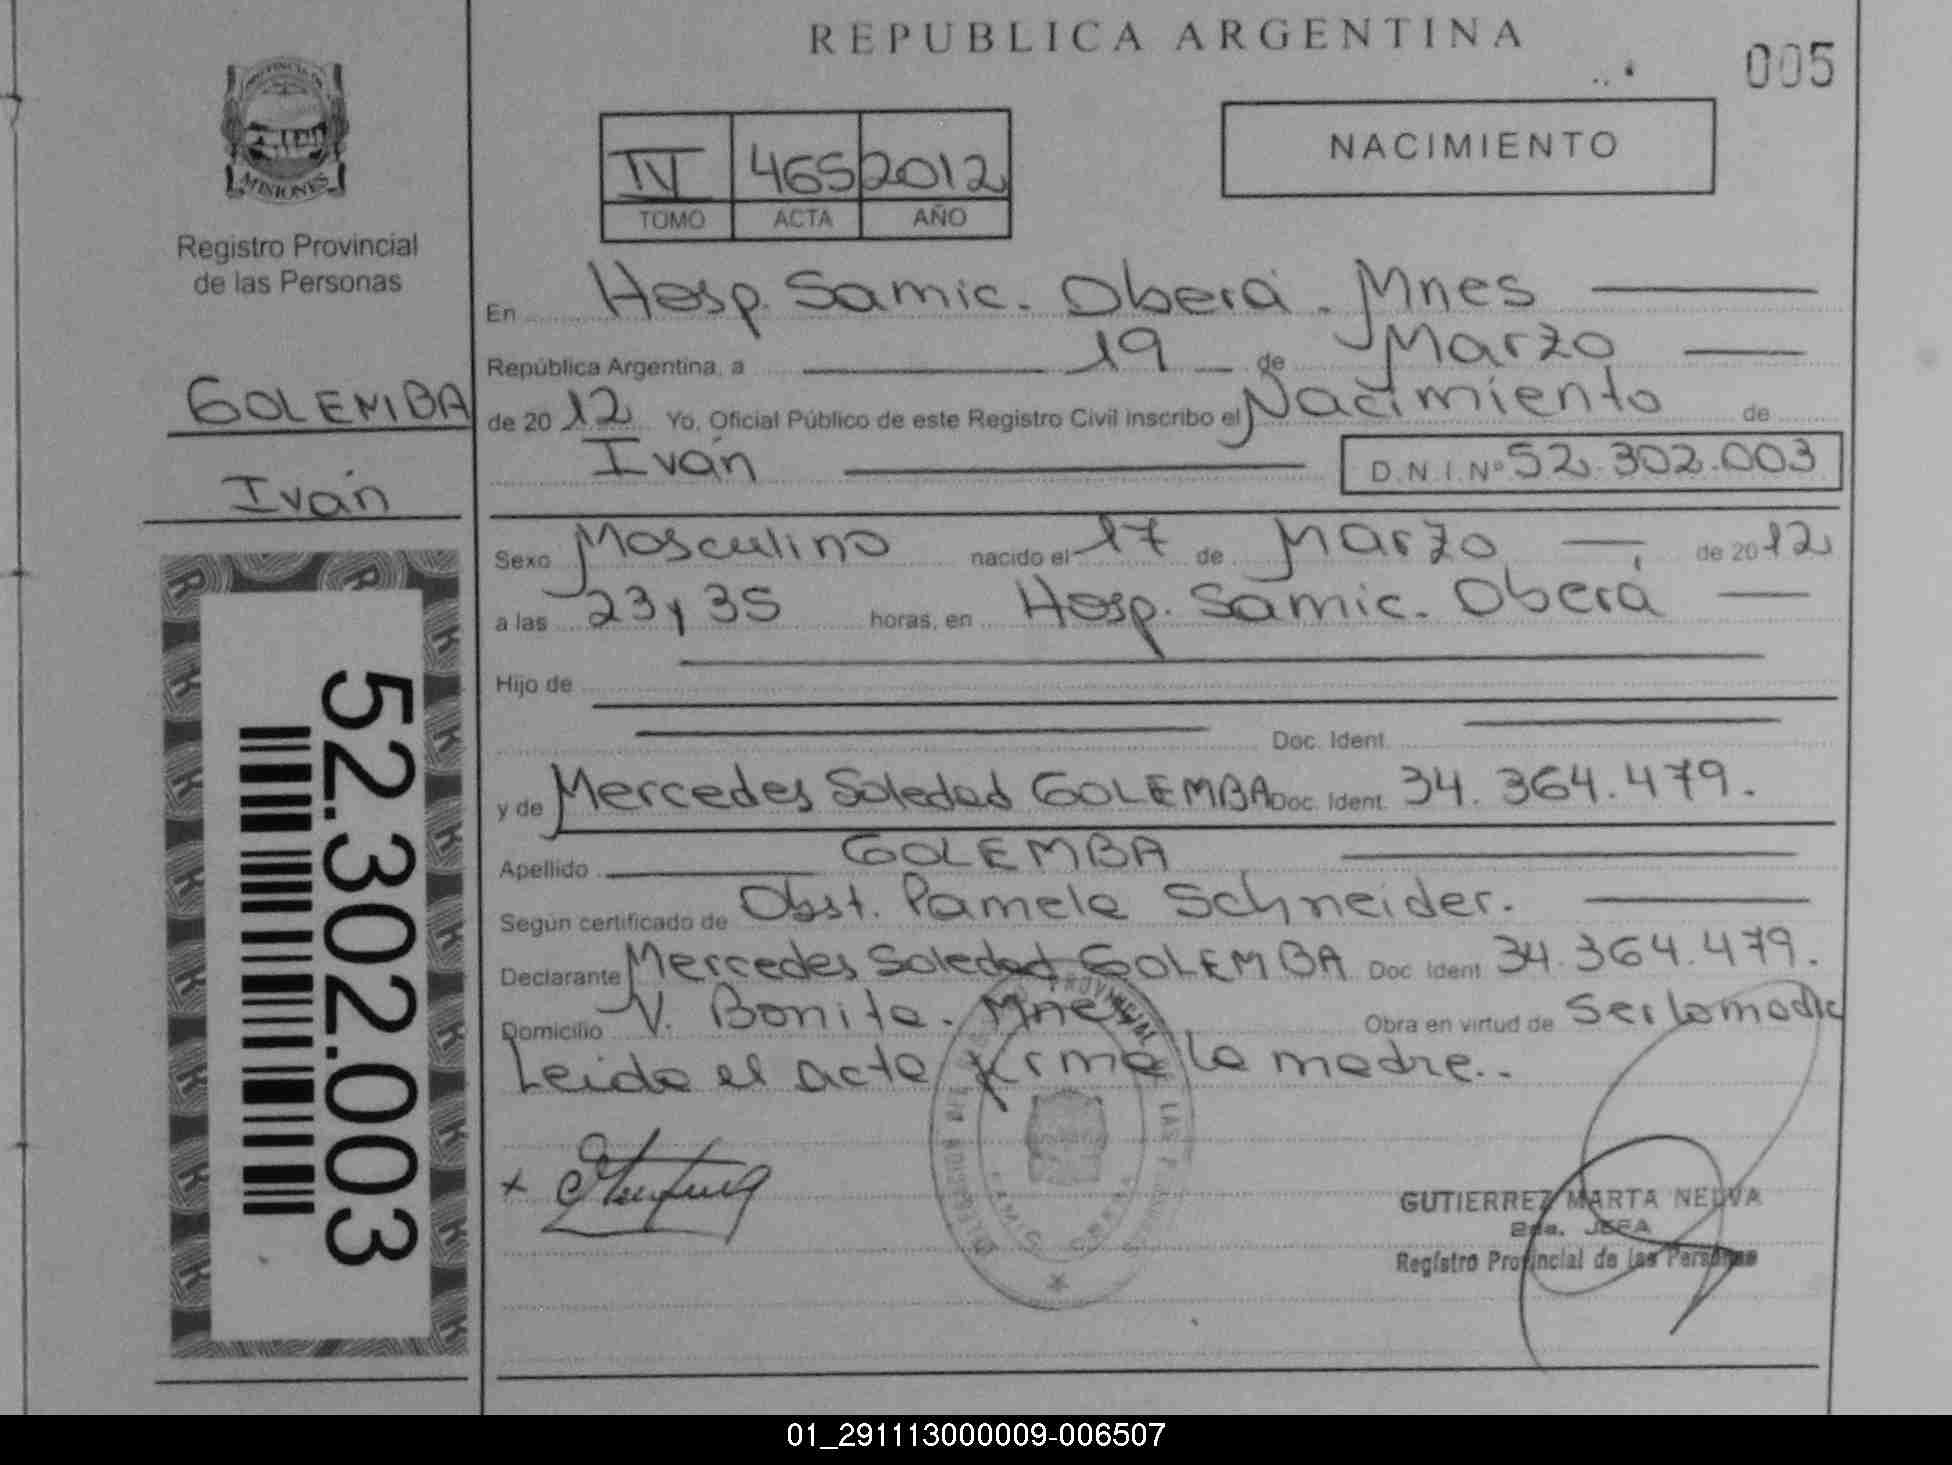 REPUBLICA ARGENTINA
005
PROVINCIA DE
MISIONES
Registro Provincial
de las Personas
IV 465 2012
TOMO ACTA AÑO
NACIMIENTO
En Hosp. Samic. Oberá. Mnes
República Argentina, a 19 de Marzo
de 2012 Yo, Oficial Público de este Registro Civil inscribo el Nacimiento de
Iván D.N.I.Nº 52.302.003
GOLEMBA
Iván
Sexo Masculino nacido el 17 de Marzo de 2012
a las 23 y 35 horas, en Hosp. Samic. Oberá
Hijo de
Doc. Ident.
y de Mercedes Soledad GOLEMBA Doc. Ident. 34.364.479.
Apellido GOLEMBA
Según certificado de Obst. Pamela Schneider.
Declarante Mercedes Soledad GOLEMBA Doc. Ident 34.364.479.
Domicilio V. Bonita. Mnes Obra en virtud de Ser la madre
Leida el acta firma la madre..
52.302.003
PROVINCIAL DE LAS
SAMIC OBERA
GUTIERREZ MARTA NELVA
2da. JEFA
Registro Provincial de las Personas
01_291113000009-006507